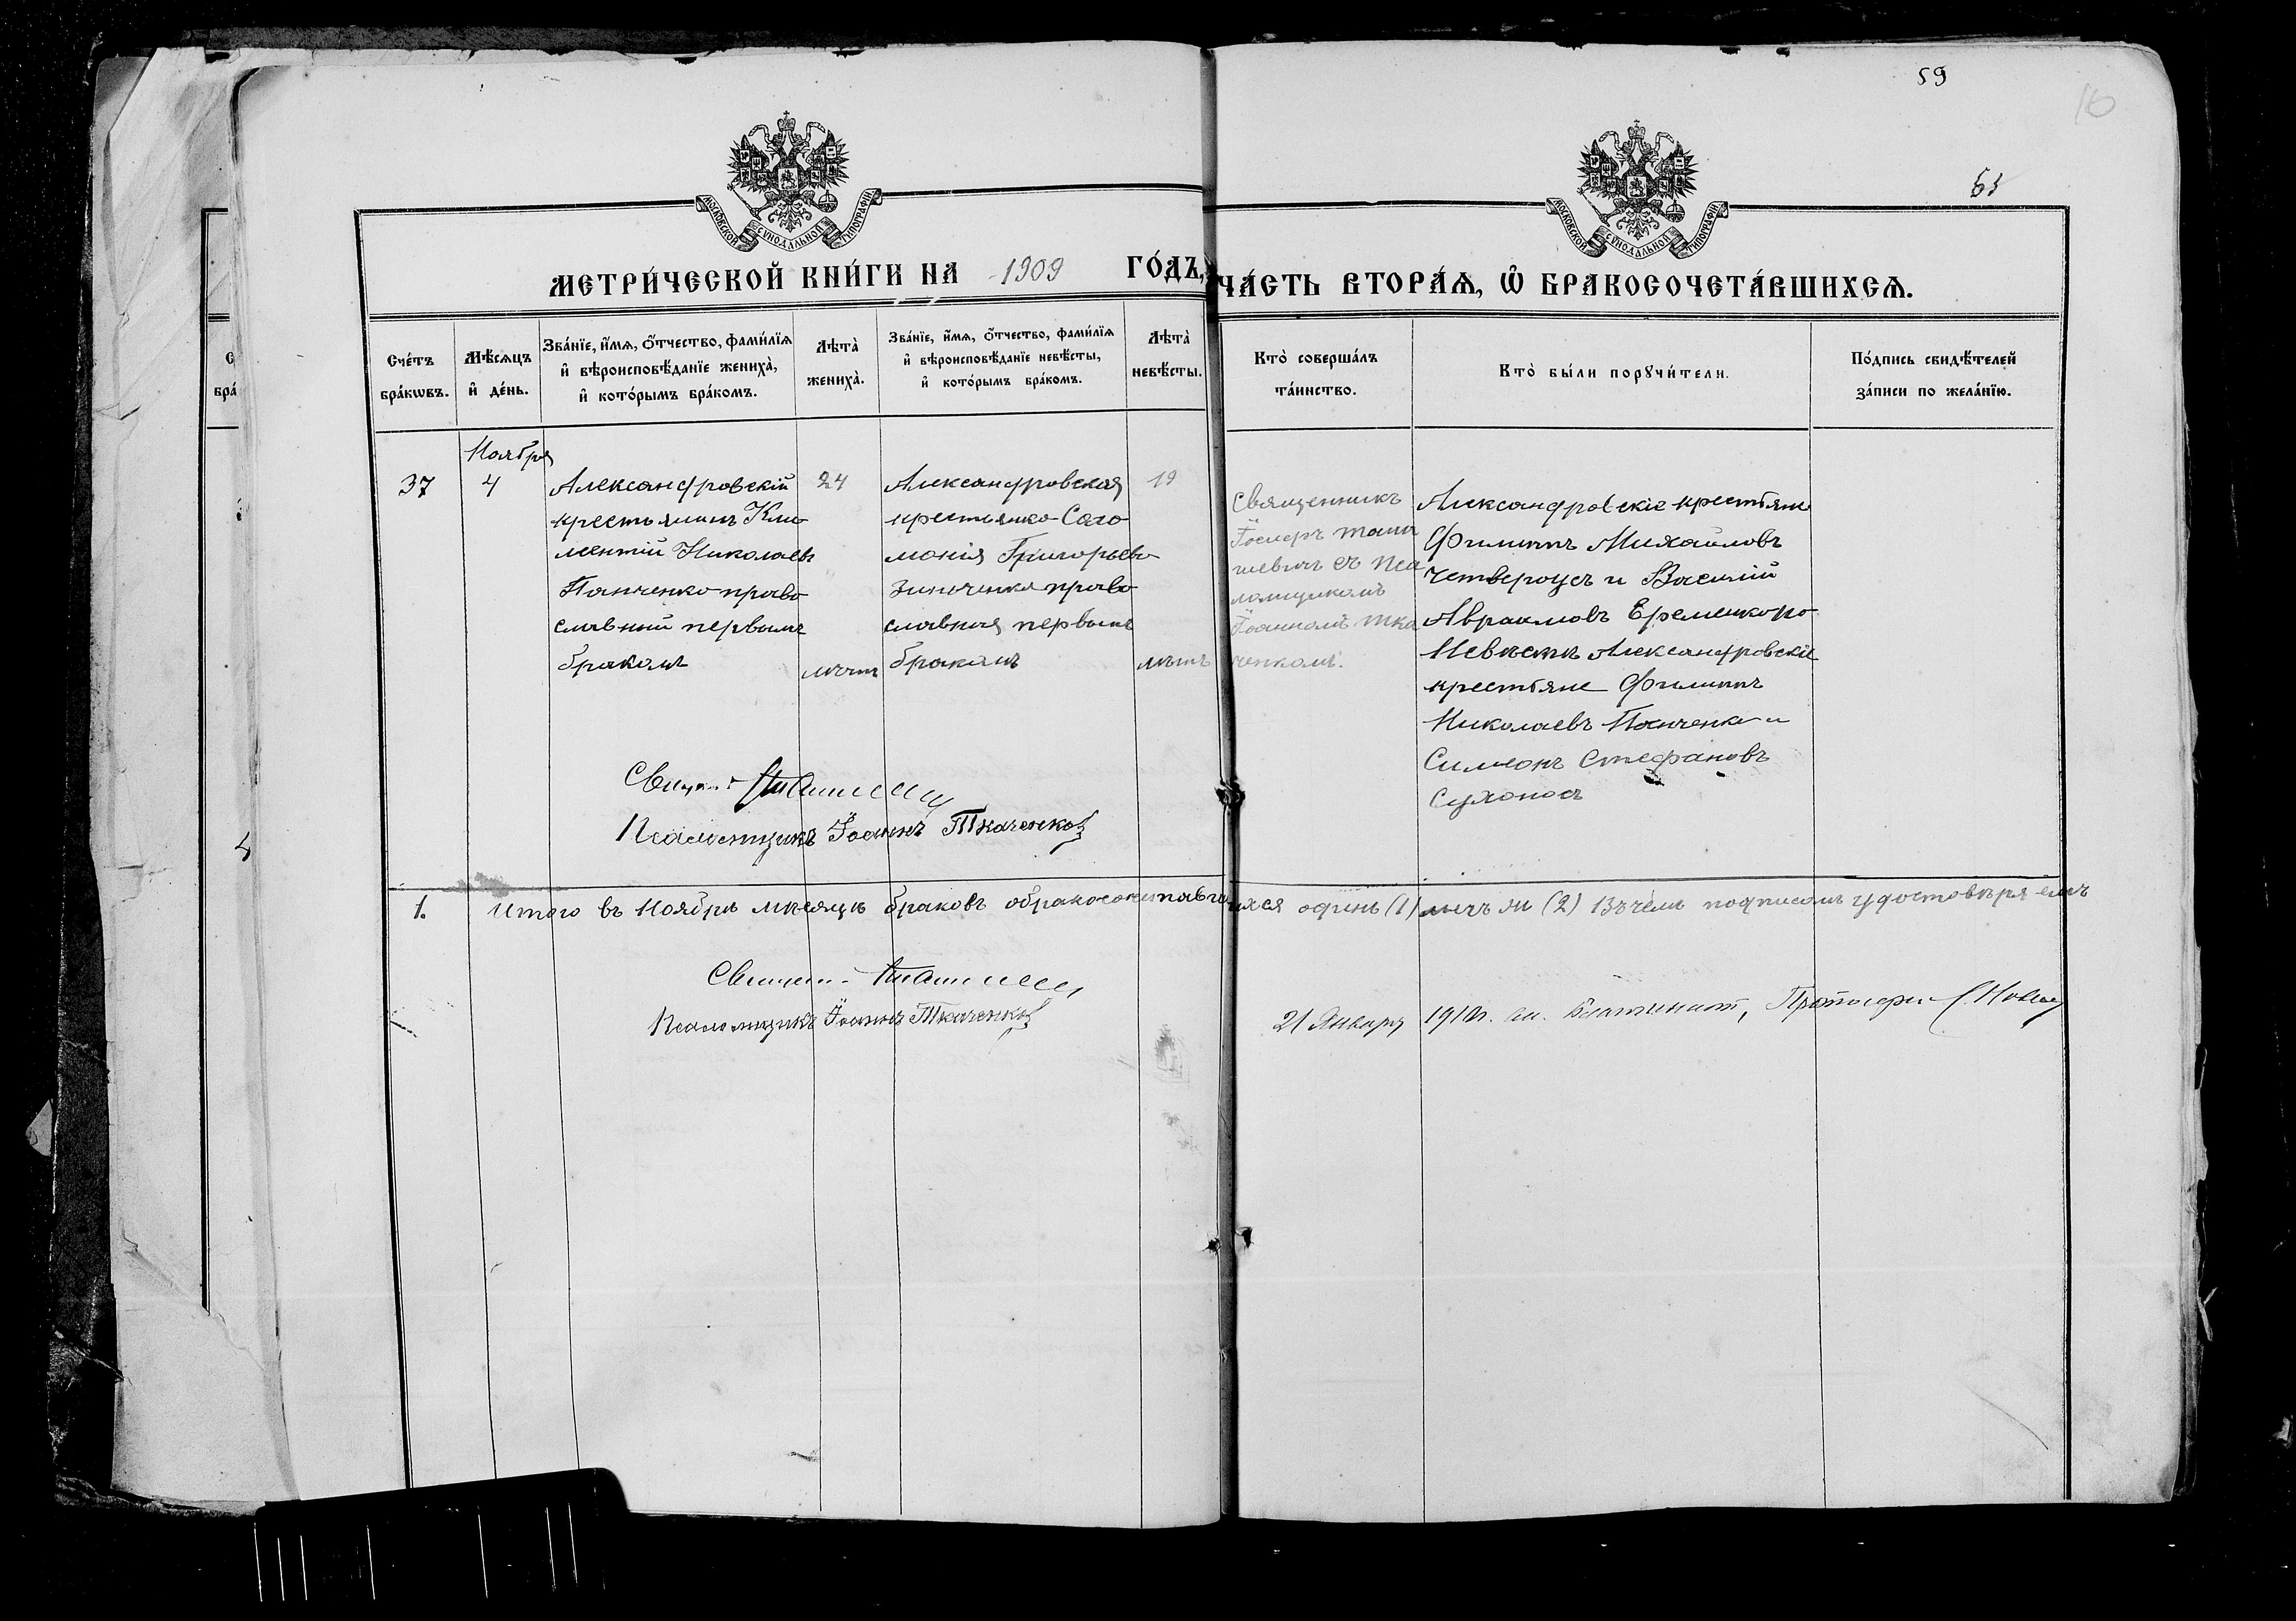 59
16
МОСКОВСКОЙ СУНОДАЛЬНОЙ ТИПОГРАФІИ
МОСКОВСКОЙ СУНОДАЛЬНОЙ ТИПОГРАФІИ
МЕТРИ́ЧЕСКОЙ КНИ́ГИ НА 1909 ГО́ДЪ,
ЧА́СТЬ ВТОРА́Ѧ, Ѽ БРАКОСОЧЕТА́ВШИХСѦ.
Сче́тъ
бра́кѡвъ.
Мѣ́сѧцъ
и҆ де́нь.
Зва́нїе, и҆́мѧ, ѻ҆́тчество, фами́лїѧ
и҆ вѣроисповѣ́данїе жениха̀,
и҆ кото́рымъ бра́комъ.
Лѣта̀
жениха̀.
Зва́нїе, и҆́мѧ, ѻ҆́тчество, фами́лїѧ
и҆ вѣроисповѣ́данїе невѣ́сты,
и҆ кото́рымъ бра́комъ.
Лѣта̀
невѣ́сты.
Кто̀ соверша́лъ
та́инство.
Кто̀ бы́ли порꙋчи́тели.
По́дпись свидѣ́телей
за́писи по жела́нїю.
37
Ноября
4
Александровскій
крестьянинъ Кли
ментій Николаевъ
Панченко право
славный первымъ
бракомъ
24
лѣтъ
Александровская
крестьянка Соло
монія Григорьева
Зинченко право
славная первымъ
бракомъ
19
лѣтъ
Священникъ
Іосифъ
съ Пса
ломщикомъ
Іоанномъ Тка
ченкомъ.
Александровскіе крестьяне
Филиппъ Михайловъ
Четвероусъ и Василій
Авраамовъ Еременко по
Невѣстѣ Александровскіе
крестьяне Филиппъ
Николаевъ Панченко и
Симеонъ Стефановъ
Сухоносъ
Псаломщикъ Іоаннъ Ткаченко
1. Итого въ Ноябрѣ мѣсяцѣ браковъ обракосочетавшихся одинъ (1) (2) подписомъ удостовѣряемъ
Псаломщикъ Іоаннъ Ткаченко
21 Января 1910 г.